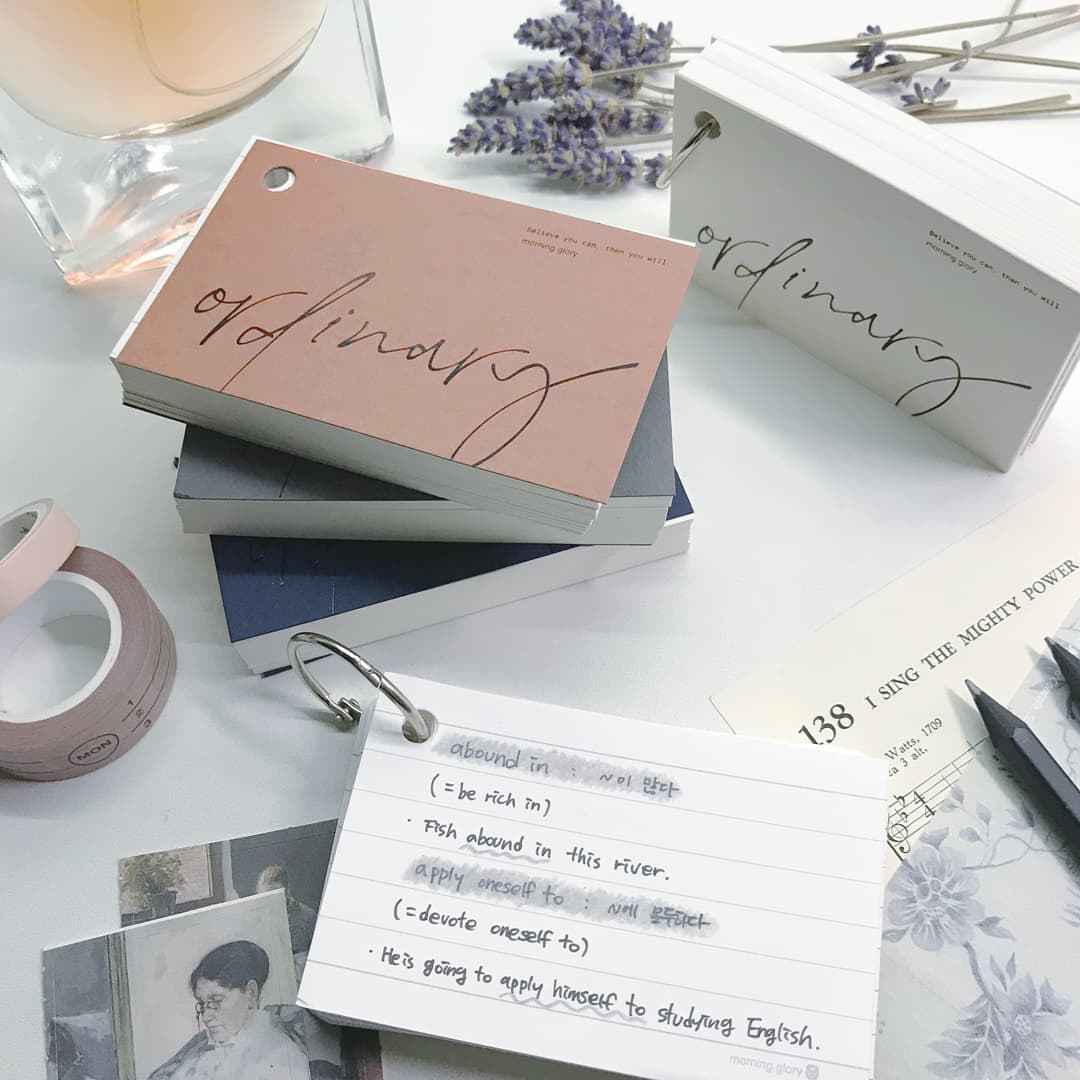 Believe you can, then you will
morning glory
ordinary
Believe you can, then you will
morning glory
ordinary
138 I SING THE MIGHTY POWER
Watts, 1709
3 alt.
4
4
1
2
3
MON
abound in : ~이 많다
(=be rich in)
· Fish abound in this river.
apply oneself to : ~에 몰두하다
(=devote oneself to)
· He is going to apply himself to studying English.
morning glory